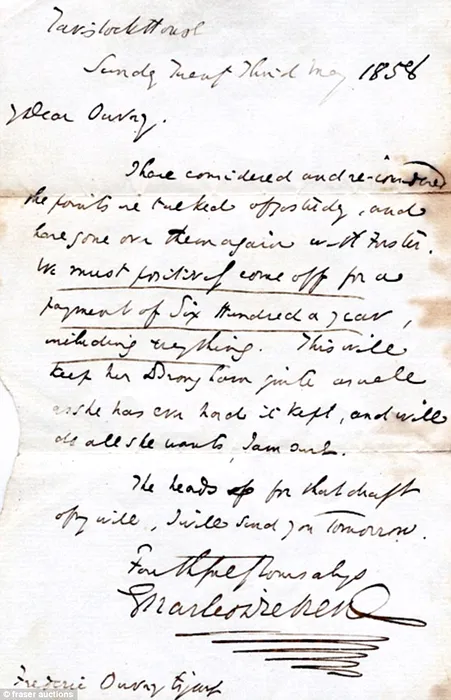 Tavistock House
Sunday Twenty Third May 1858
My Dear Ouvry.
I have considered and re-considered
the points we talked of yesterday, and
have gone over them again with Forster.
We must positively come off for a
payment of Six Hundred a year,
including everything. This will
keep her Brougham quite as well
as she has ever had it kept, and will
do all she wants, I am sure.
The heads for that draft
of my will, I will send you Tomorrow.
Faithfully Yours always
Charles Dickens
Frederic Ouvry Esquire
© fraser auctions